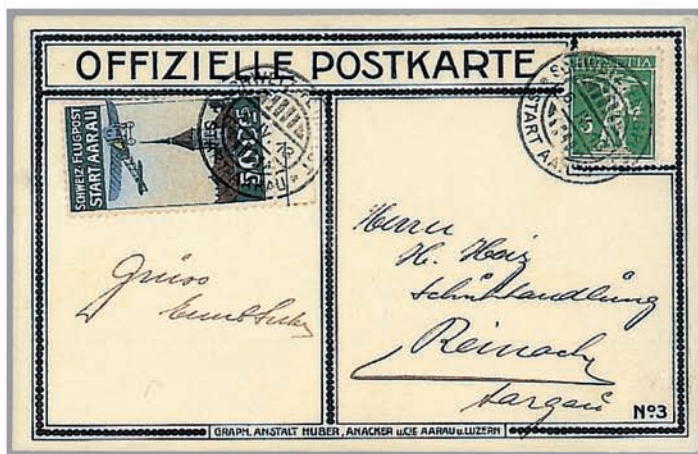 OFFIZIELLE POSTKARTE
SCHWEIZ. FLUGPOST
START AARAU
50 C 50
HELVETIA
5
START AARAU
Gruss
Herrn
H. Haiz
Schuhhandlung
Reinach
Aargau
No 3
GRAPH. ANSTALT HUBER, ANACKER u. CIE AARAU u. LUZERN